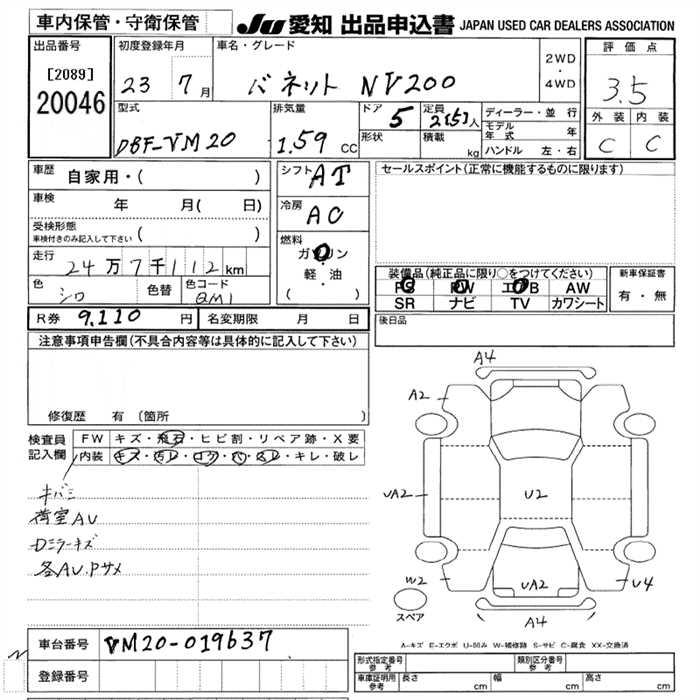 車内保管・守衛保管
JU 愛知 出品申込書 JAPAN USED CAR DEALERS ASSOCIATION
出品番号 初度登録年月 車名・グレード 評価点
[2089]
20046 23 7月 バネット NV200 2WD・4WD 3.5
型式 排気量 ドア 定員 ディーラー・並行 外装 内装
DBF-VM20 1.59 CC 5 2(5)人 モデル年式 年 C C
形状 積載 kg ハンドル 左・右
車歴 自家用・( ) シフト AT セールスポイント(正常に機能するものに限ります)
車検 年 月( 日) 冷房 AC
受検形態
車検付きのみ記入して下さい ( ) 燃料 ガソリン
走行 24万7千112km 軽・油
色 シロ 色替 色コード QM1 ( )
装備品(純正品に限り○をつけてください) 新車保証書
PS PW エアB AW 有・無
SR ナビ TV カワシート
R券 9,110 円 名変期限 月 日 後日品
注意事項申告欄(不具合内容等は具体的に記入して下さい)
修復歴 有(箇所 )
検査員記入欄 FW キズ・飛石・ヒビ割・リペア跡・X要
内装 キズ・汚レ・コゲ・穴・スレ・キレ・破レ
キバミ
荷室AU
Dミラーキズ
各AU.Pサメ
A4
A2
UA2 U2
W2 UA2 U4
スペア A4
A-キズ E-エクボ U-凹み W-補修跡 S-サビ C-腐食 XX-交換済
車台番号 VM20-019637
登録番号
形式指定番号参考 類別区分番号参考
車庫証明用参考 長さ cm 幅 cm 高さ cm